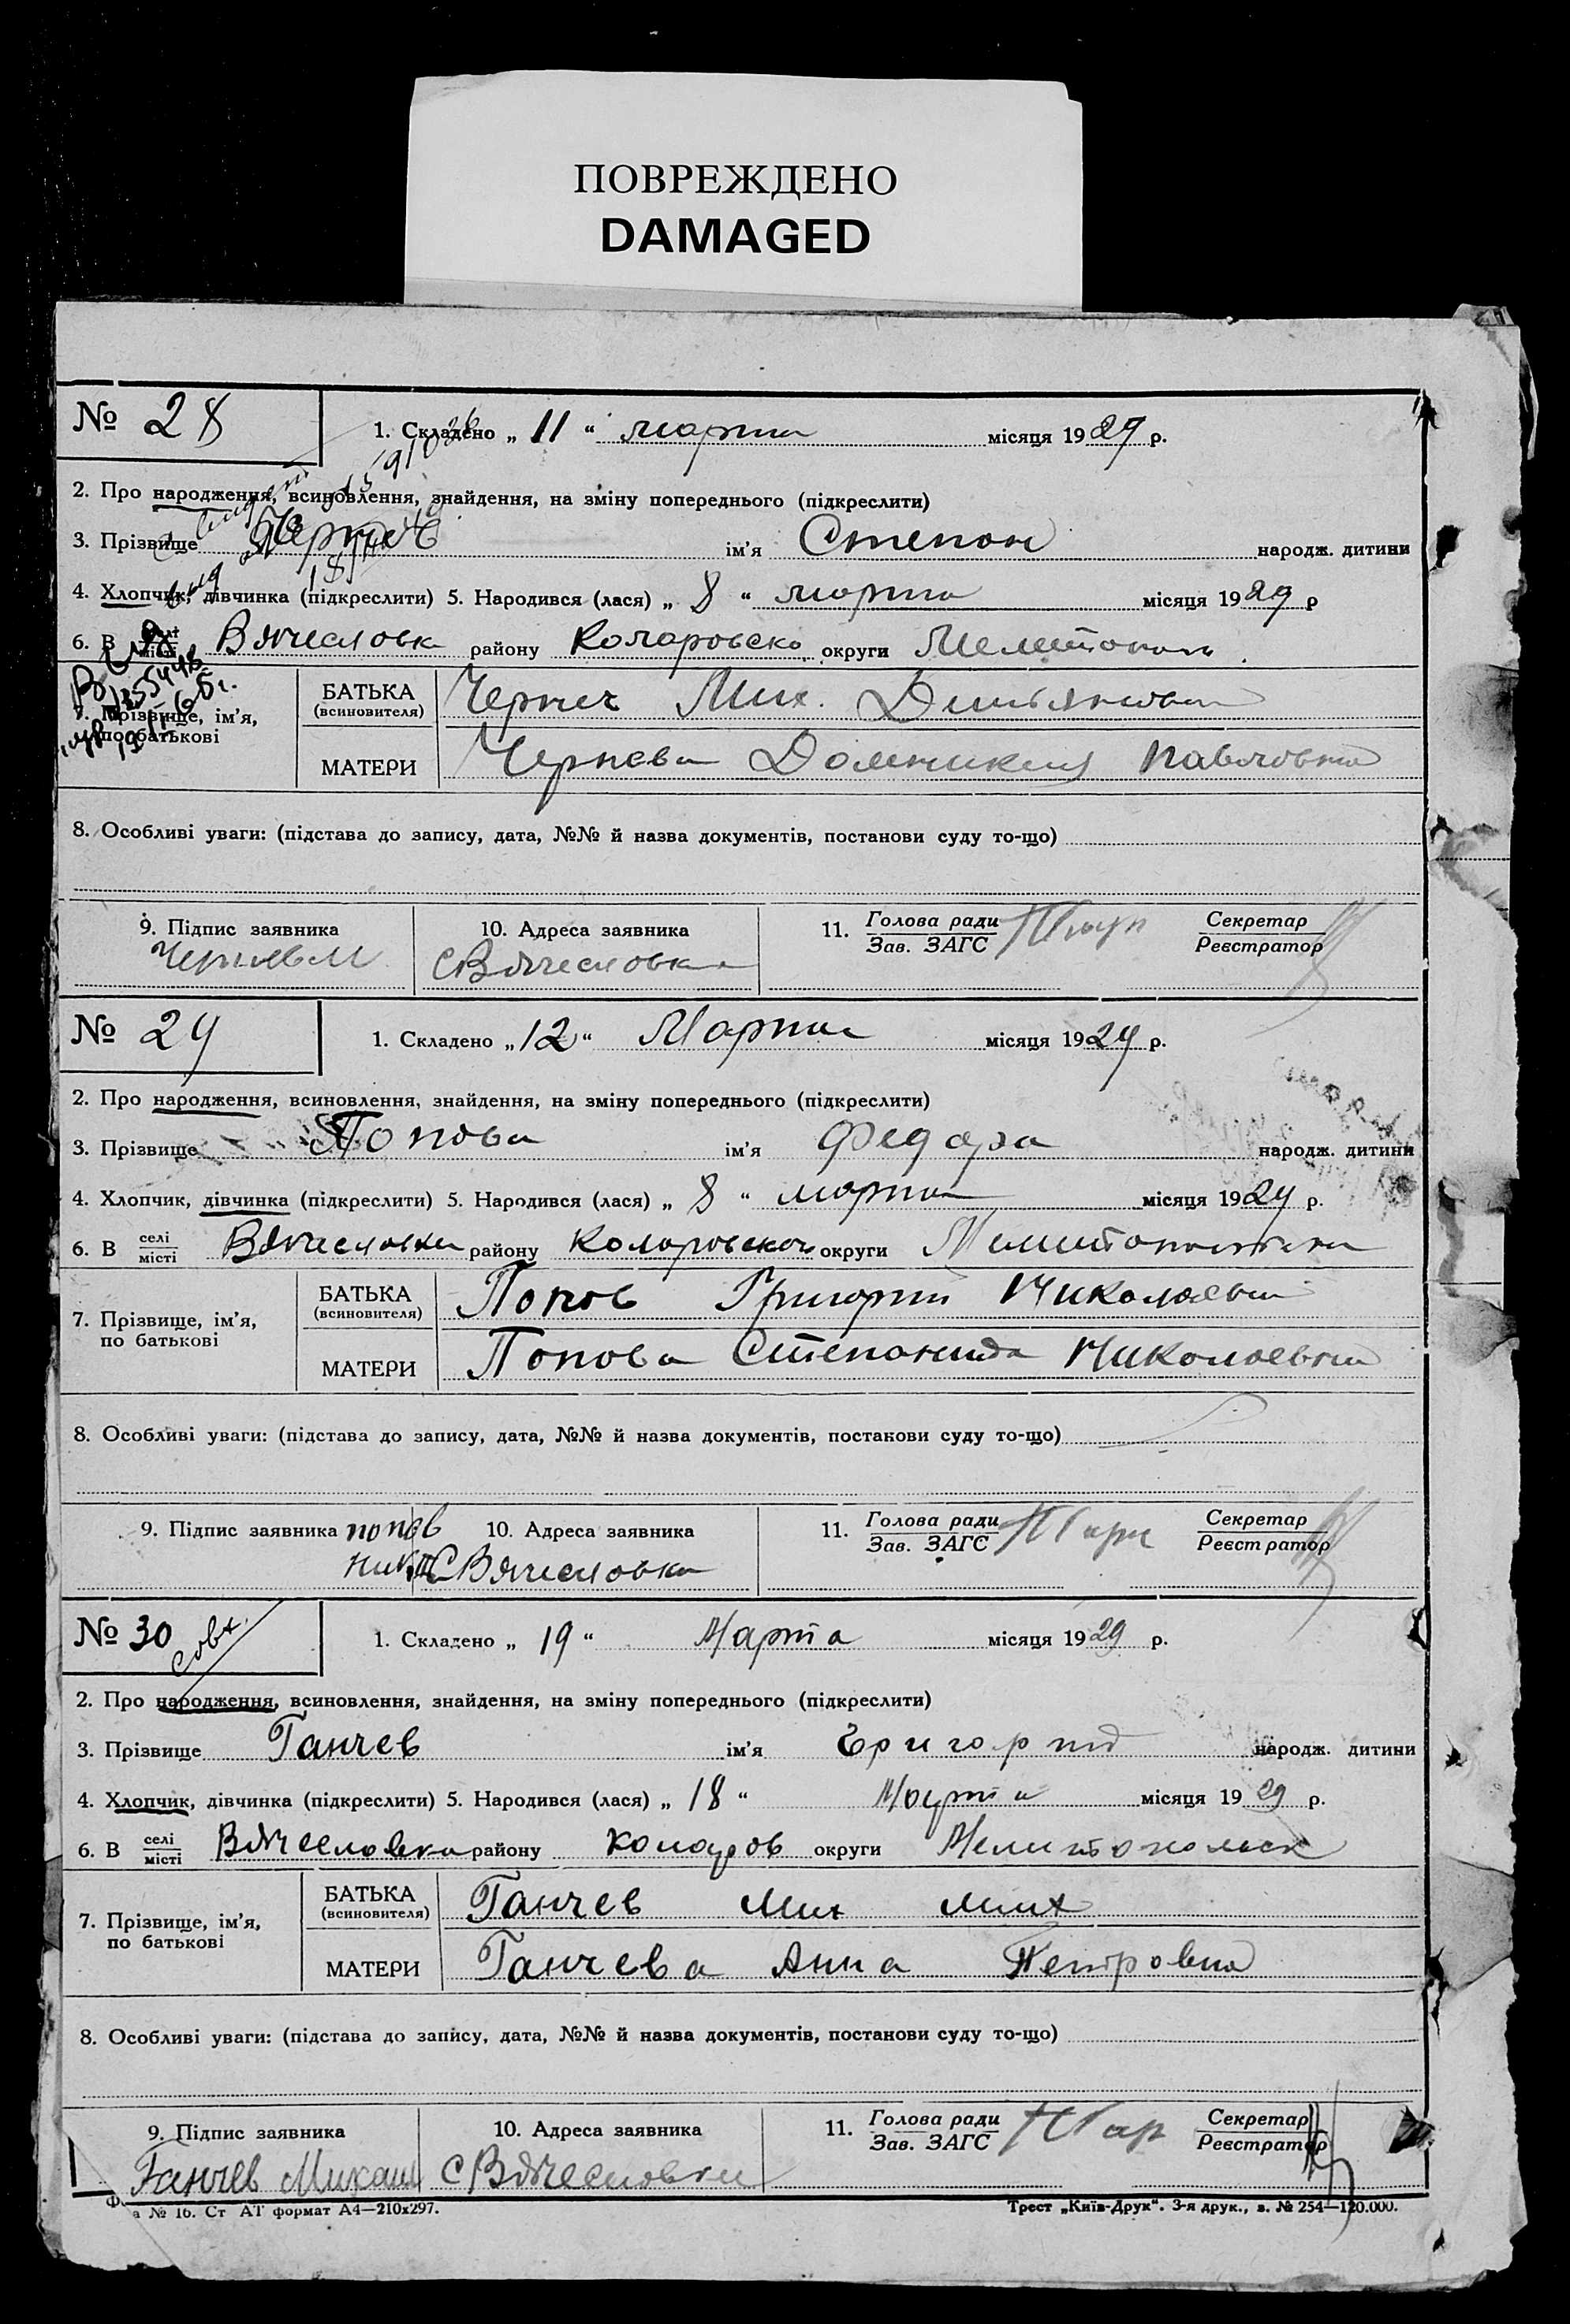 ПОВРЕЖДЕНО
DAMAGED
№ 28
1. Складено „ 11 “ марта місяця 1929 р.
2. Про народження, всиновлення, знайдення, на зміну попереднього (підкреслити)
3. Прізвище Чернев ім'я Степан народж. дитини
4. Хлопчик, дівчинка (підкреслити) 5. Народився (лася) „ 8 “ марта місяця 1929 р
6. В місті Вячесловк району Коларовско округи Мелитополь
7. Прізвище, ім'я, по батькові
БАТЬКА (всиновителя) Чернев Мих. Дмитриевич
МАТЕРИ Чернева Домникия Павловна
8. Особливі уваги: (підстава до запису, дата, №№ й назва документів, постанови суду то-що)
9. Підпис заявника 10. Адреса заявника 11. Голова ради Секретар
Зав. ЗАГС Реєстратор
Чернев М с Вячесловка
№ 29
1. Складено „ 12 “ Марта місяця 1929 р.
2. Про народження, всиновлення, знайдення, на зміну попереднього (підкреслити)
3. Прізвище Попова ім'я Федора народж. дитини
4. Хлопчик, дівчинка (підкреслити) 5. Народився (лася) „ 8 “ марта місяця 1929 р.
6. В селі місті Вячесловка району Коларовского округи
7. Прізвище, ім'я, по батькові
БАТЬКА (всиновителя) Попов Григорий Николаевич
МАТЕРИ Попова Степанида Николаевна
8. Особливі уваги: (підстава до запису, дата, №№ й назва документів, постанови суду то-що)
9. Підпис заявника попов 10. Адреса заявника 11. Голова ради Секретар
Зав. ЗАГС Реєстратор
с Вячесловка
№ 30
1. Складено „ 19 “ Марта місяця 1929 р.
2. Про народження, всиновлення, знайдення, на зміну попереднього (підкреслити)
3. Прізвище Ганчев ім'я Григорий народж. дитини
4. Хлопчик, дівчинка (підкреслити) 5. Народився (лася) „ 18 “ Марта місяця 1929 р.
6. В селі місті Вячесловка району Коларов округи Мелитопольск
7. Прізвище, ім'я, по батькові
БАТЬКА (всиновителя) Ганчев Мих Мих
МАТЕРИ Ганчева Анна Петровна
8. Особливі уваги: (підстава до запису, дата, №№ й назва документів, постанови суду то-що)
9. Підпис заявника 10. Адреса заявника 11. Голова ради Секретар
Зав. ЗАГС Реєстратор
Ганчев Михаил с Вячесловка
а № 16. Ст АТ формат А4—210х297. Трест „Київ-Друк“. 3-я друк., з. № 254—120.000.